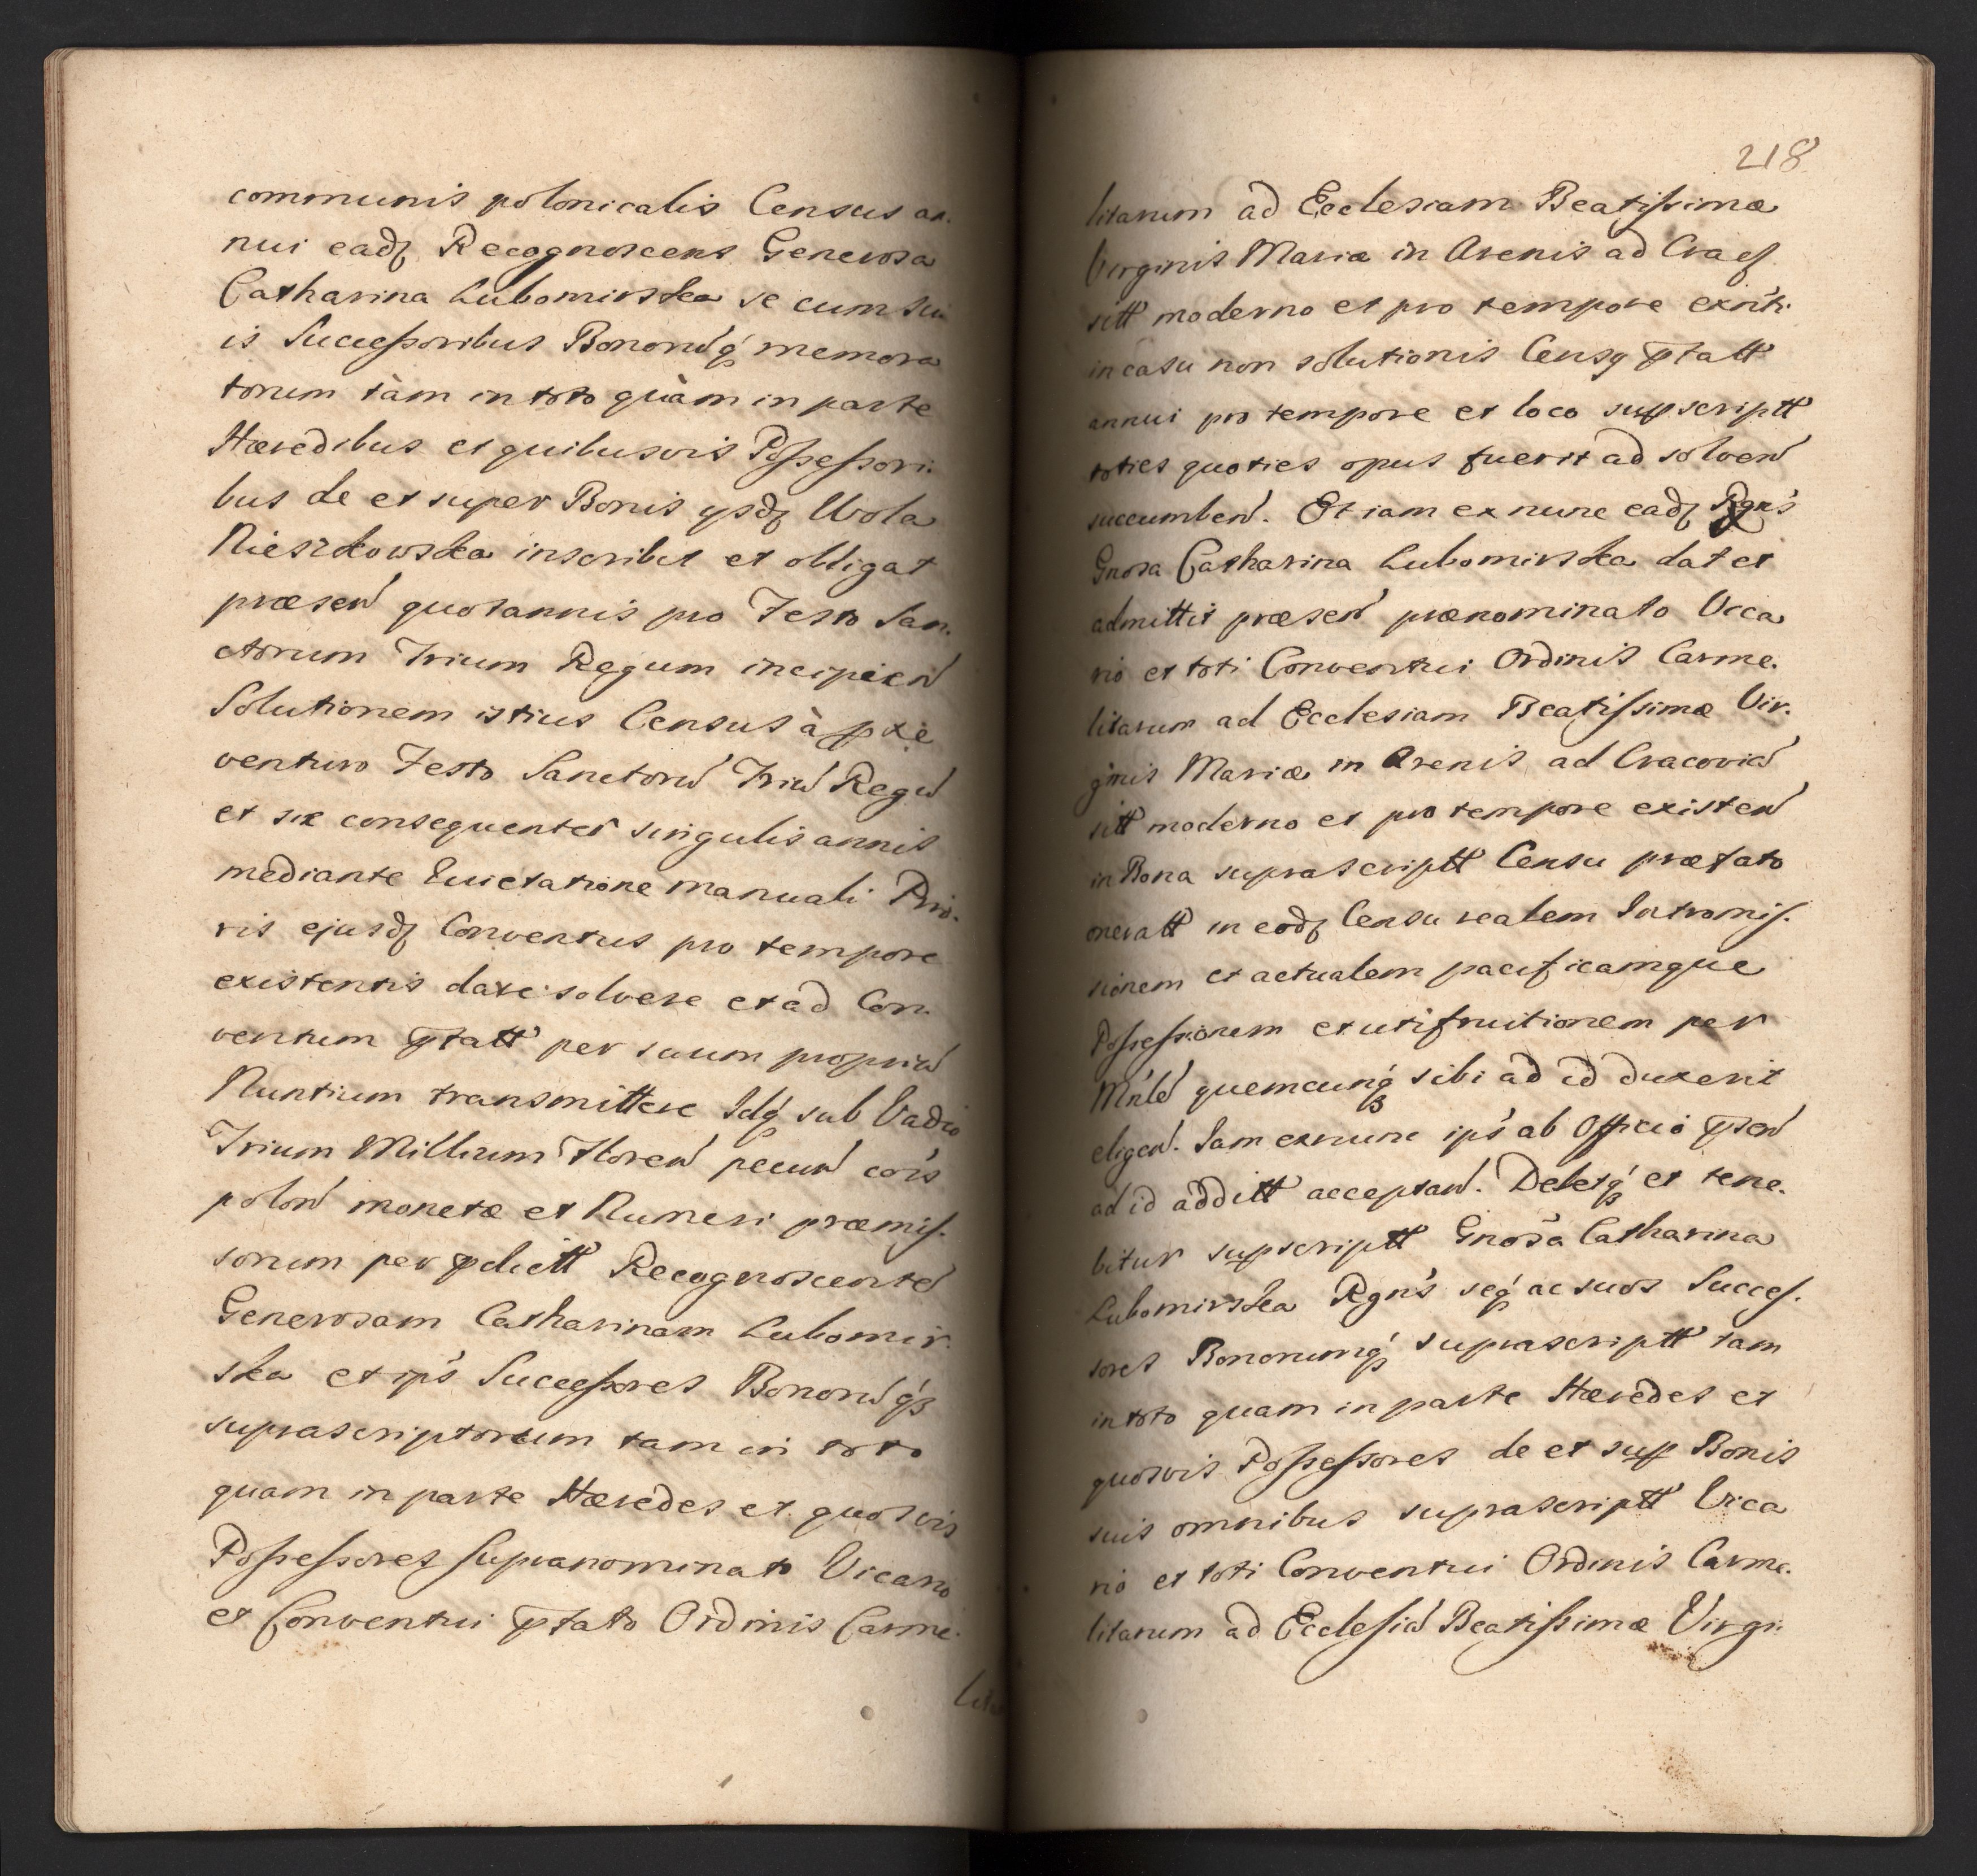 communis polonicalis Census an-
nui eadq Recognoscens Generosa
Catharina Lubomirska se cum su
is Successoribus Bonorūq́ memora
torum tàm in toto quàm in parte
Hæredibus et quibusvis Possessori-
bus de et super Bonis ysdq Wola
Nieszkowska inscribit et obligat
præsen̄ quotannis pro Festo San-
ctorum Trium Regum incipien̄
Solutionem istius Census à pxe
venturo Festo Sanctorū Triū Regū
et sic consequenter singulis annis
mediante Quietatione manuali Prio-
ris ejusdq Conventus pro tempore
existentis dare solvere et ad Con-
ventum p̄tatt per suum propriū
Nuntium transmittere Idq́ sub Vadio
Trium Millium Floren̄ pecun̄ cōis
polon̄ monetæ et Numeri præmis-
sorum per p̄dictt Recognoscentē
Generosam Catharinam Lubomir-
ska et ip̄s Successores Bonorūq́
suprascriptorum tam in toto
quam in parte Hæredes et quosvis
Possessores supranominato Vicario
et Conventui p̄tato Ordinis Carme-
lita
218
litarum ad Ecclesiam Beatissimæ
Virginis Mariæ in Arenis ad Crac
sitt moderno et pro tempore exn̄ti
in casu non solutionis Censq p̄tatt
annui pro tempore et loco supscriptt
toties quoties opus fuerit ad solven̄
succumben̄. Et iam ex nunc eadq Rgn̄s
Gnosa Catharina Lubomirska dat et
admittit præsen̄ prænominato Vica
rio et toti Conventui Ordinis Carme-
litarum ad Ecclesiam Beatissimæ Vir-
ginis Mariæ in Arenis ad Cracoviā
sitt moderno et pro tempore existen̄
in Bona suprascriptt Censu præfato
oneratt in eodq Censu realem Intromis-
sionem et actualem pacificamque
Possessionem et utifruitionem per
Mn̄lē quemcunq́ sibi ad id duxerit
eligen̄. Iam exnunc ip̄s ab Officio p̄sen̄
ad id additt acceptan̄. Debetq́ et tene-
bitur supscriptt Gnosa Catharina
Lubomirska Rgn̄s seq́ ac suos Succes-
sores Bonorumq́ suprascriptt tam
in toto quam in parte Hæredes et
quosvis Possessores de et sup Bonis
suis omnibus suprascriptt Vica
rio et toti Conventui Ordinis Carme-
litarum ad Ecclesiā Beatissimæ Virgi-